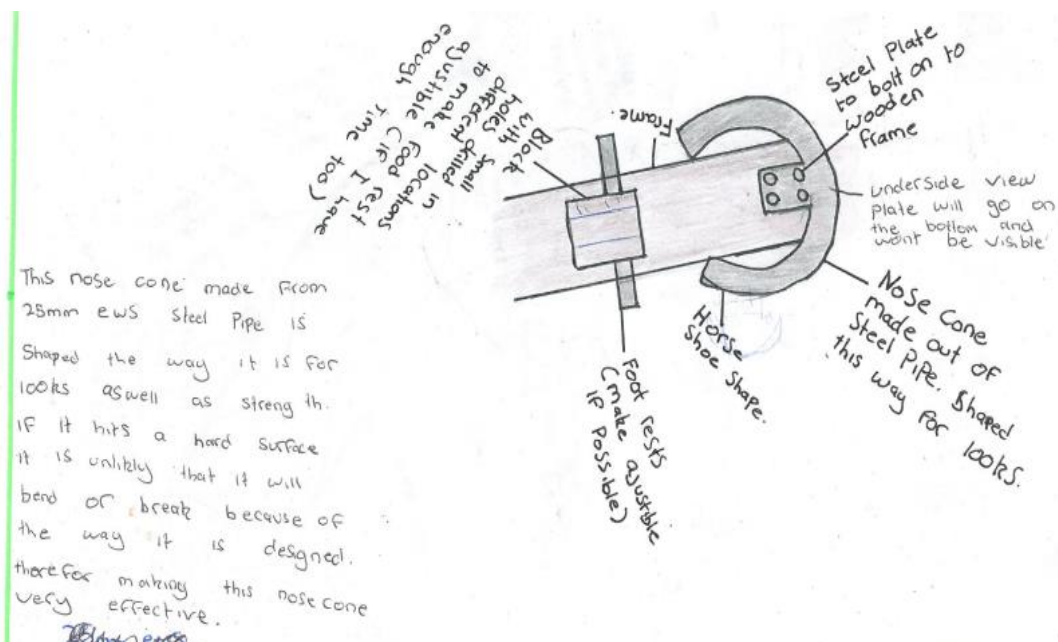 This nose cone made From
25mm ews Steel Pipe is
Shaped the way it is for
looks aswell as streng th.
IF it hits a hard surface
it is unlikly that it will
bend or break because of
the way it is designed.
therefor making this nose cone
very effective.
Block
with small
holes drilled in
to different locations
to make food rest
ajustible (if I have
enough time too)
Frame.
Steel Plate
to bolt on to
wooden
frame
underside view
plate will go on
the bottom and
wont be visible
Nose Cone
made out of
Steel Pipe. Shaped
this way for looks.
Horse
Shoe Shape.
Foot rests
(make ajustible
if possible)